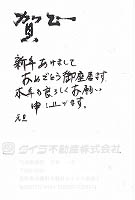 賀正
新年あけまして
おめでとう御座居ます
本年も良ろしくお願い
申し上げます。
元旦
タイラ不動産株式会社